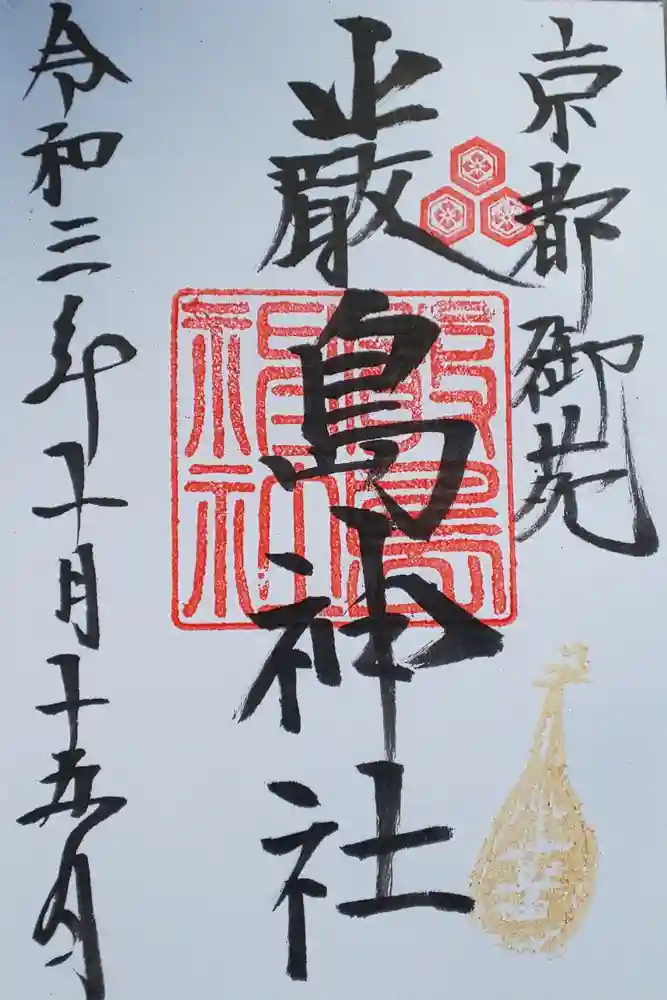 京都御苑
嚴島神社
令和三年十月十五日